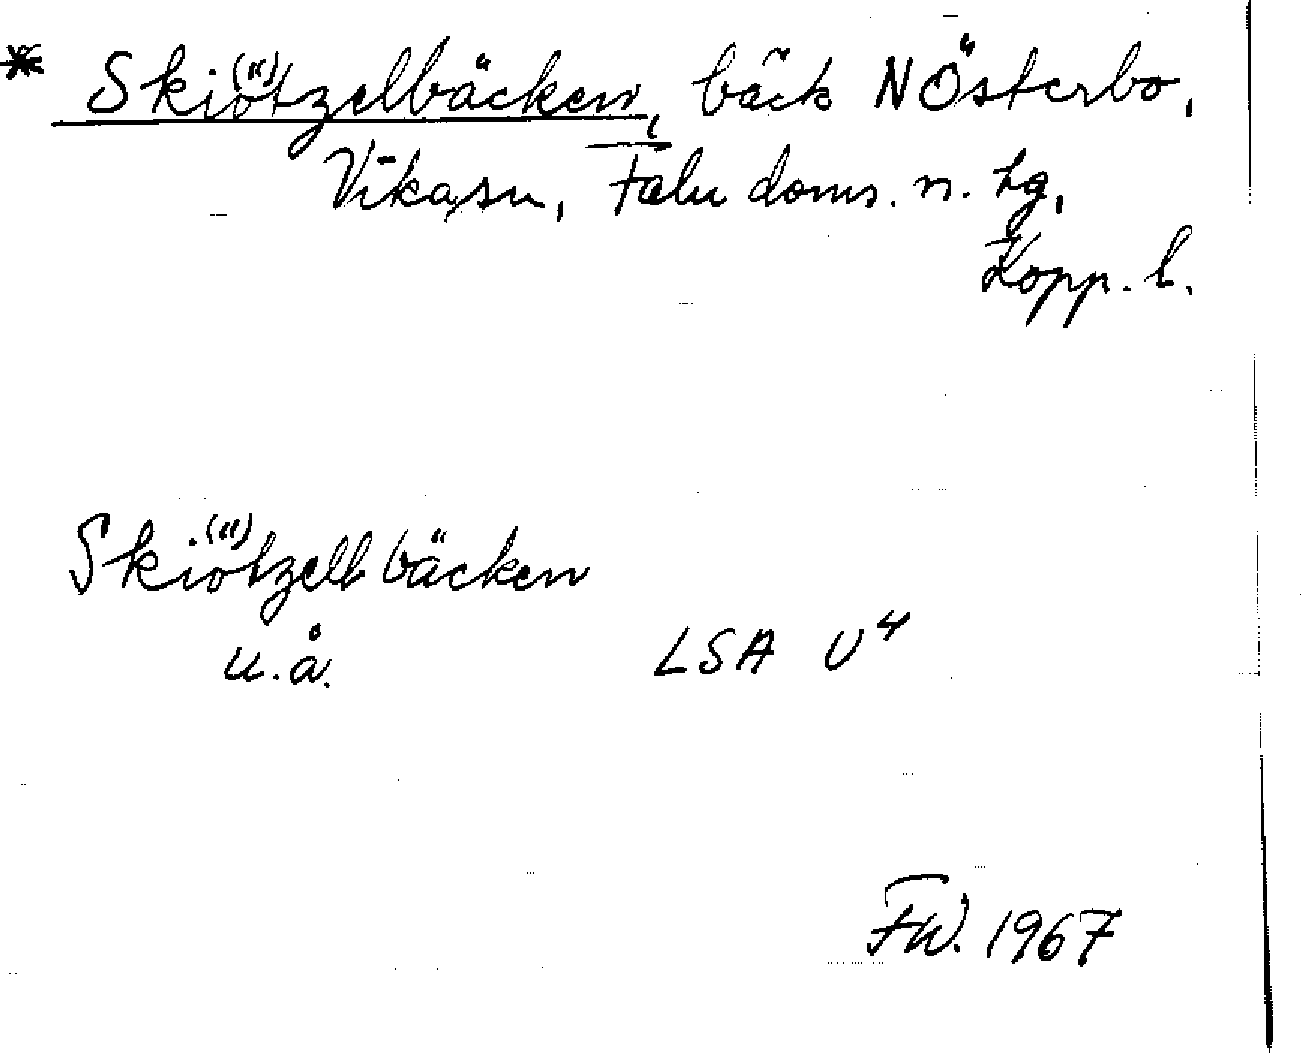 * Skiö(")tzelbäcken, bäck N Österbo,
Vika sn, Falu doms. n. tg,
Kopp. l.
Skiö(")tzellbäcken
u.å. LSA U4
FW. 1967